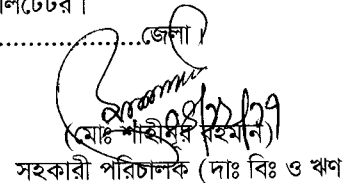 ..............................জেলা।
(মোঃ শাহীদুর রহমান)
সহকারী পরিচালক (দাঃ বিঃ ও ঋণ